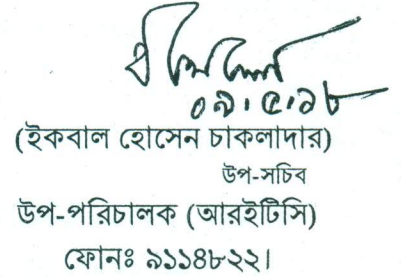 ০৯.৫.১৮
(ইকবাল হোসেন চাকলাদার)
উপ-সচিব
উপ-পরিচালক (আরইটিসি)
ফোনঃ ৯১১৪৮২২।